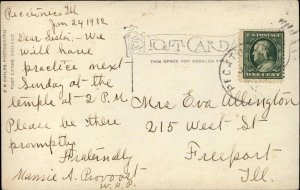 Pecatonica Ill
Jan 24 1912
Dear Sister,- We
will have
practice next
Sunday at the
temple at 2 P.M
Please be there
promptly
Fraternally
Mamie A. Provost
W.H.P.
POST CARD
THIS SPACE FOR ADDRESS
U.S. POSTAGE
ONE CENT
PECAT
Mrs Eva Allington
215 West St
Freeport
Ill.